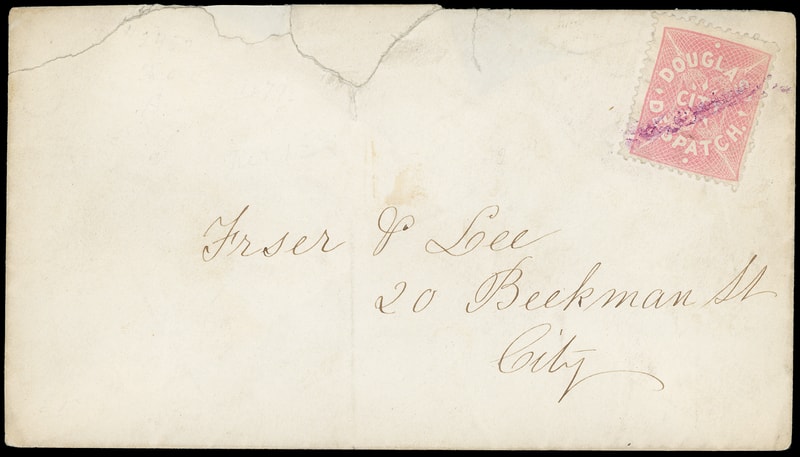 DOUGLAS
CITY
DISPATCH
Frser & Lee
20 Beekman St
City